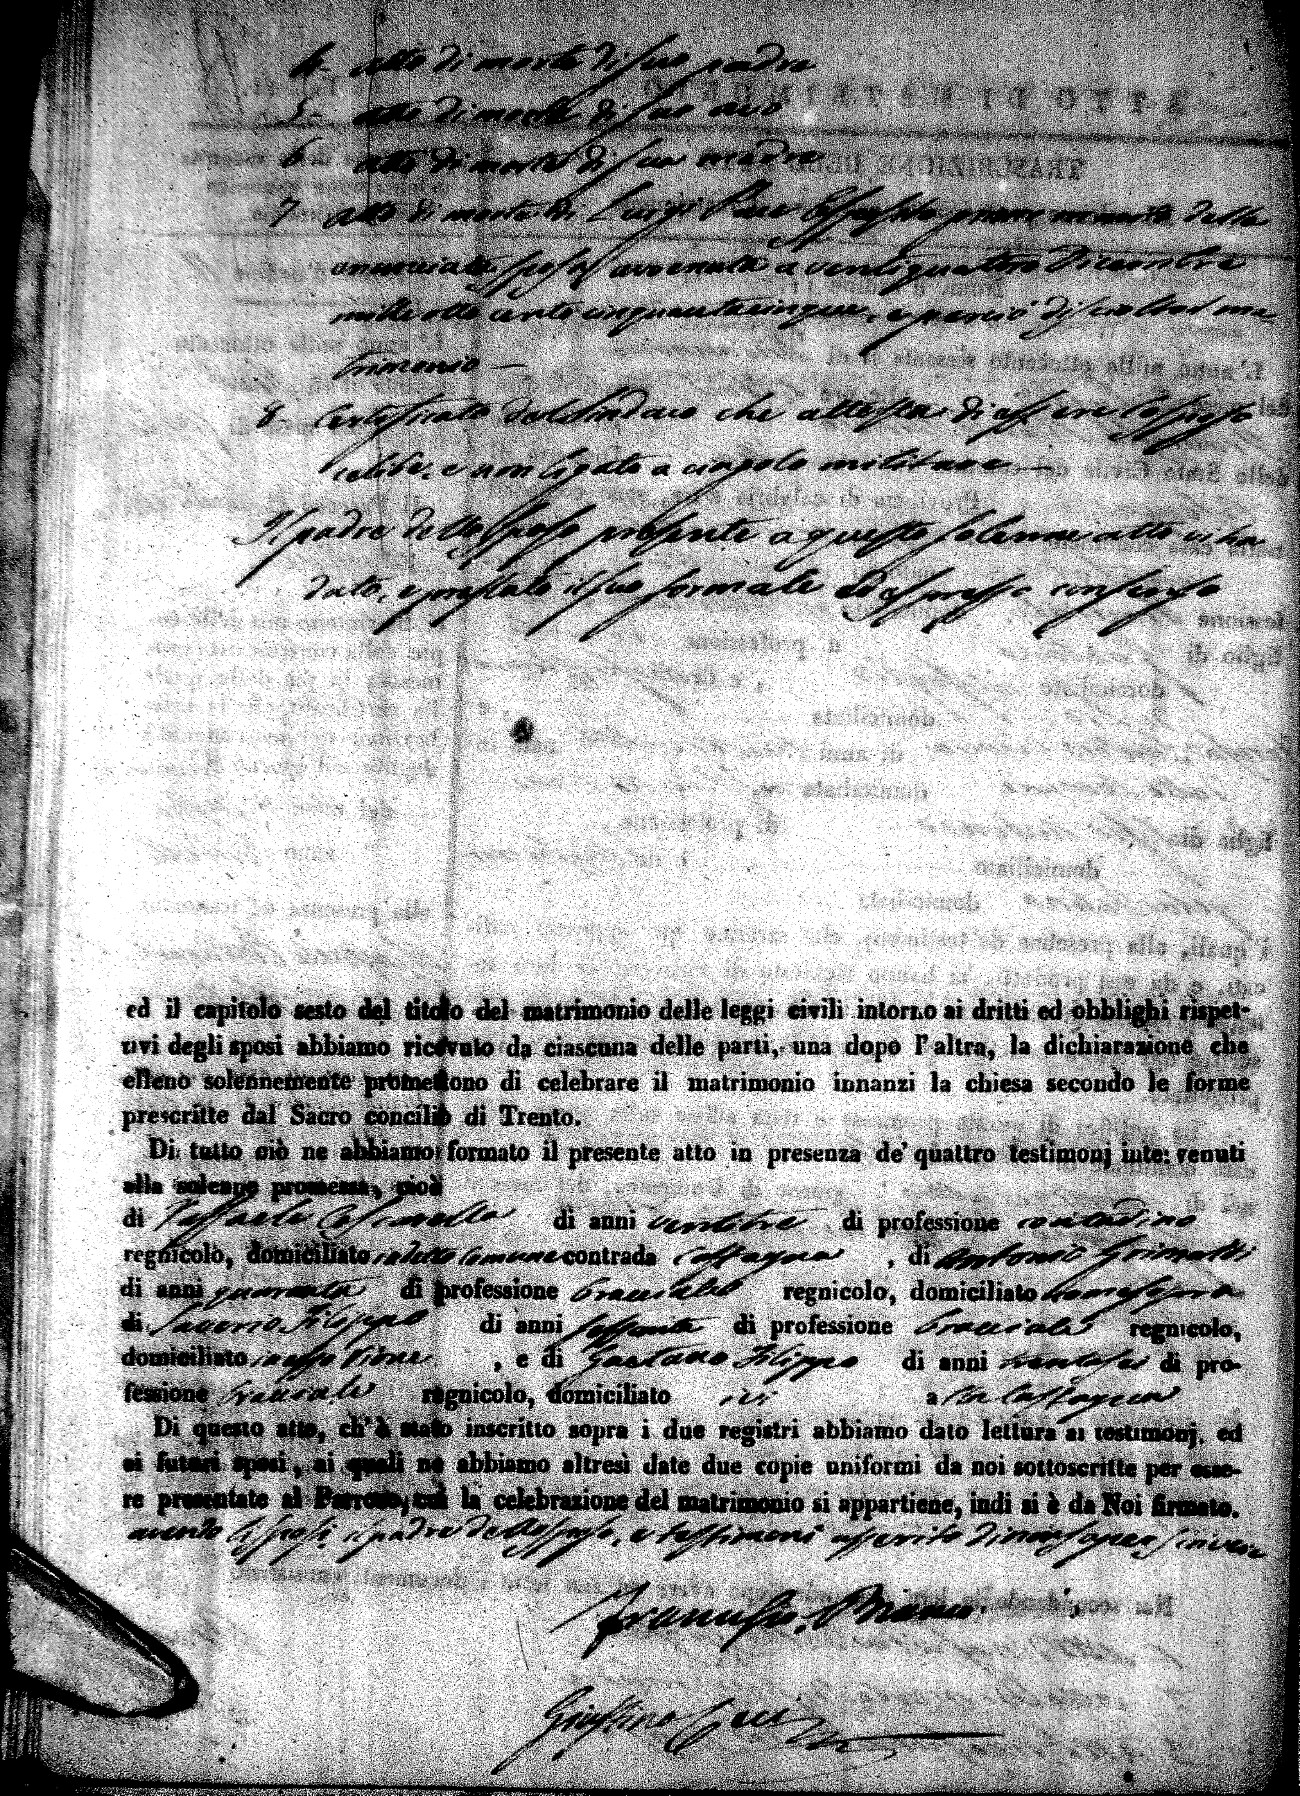 4- atto di morte di suo padre
5- atto di morte di suo avo
6 atto di morte di sua madre
7 atto di morte di Luigi esposito primo marito della
anunciata sposa avvenuta a ventiquattro Dicembre
mille otto cento cinquantacinque, e perciò disciolto il ma-
trimonio —
8- Certificato del Sindaco che attesta di essere lo sposo
celibe, e non legato a vincolo militare —
Il padre dello sposo presente a questo solenne atto vi ha
dato, e prestato il suo formale ed espresso consenso
ed il capitolo sesto del titolo del matrimonio delle leggi civili intorno ai dritti ed obblighi rispet-
tivi degli sposi abbiamo ricevuto da ciascuna delle parti, una dopo l'altra, la dichiarazione che
elleno solennemente promettono di celebrare il matrimonio innanzi la chiesa secondo le forme
prescritte dal Sacro concilio di Trento.
Di tutto ciò ne abbiamo formato il presente atto in presenza de' quattro testimonj intervenuti
alla solenne promessa, cioè
di Raffaele di anni ventitre di professione contadino
regnicolo, domiciliato in detto Comune contrada Castagna , di Antonio Grimaldi
di anni quaranta di professione bracciale regnicolo, domiciliato
di Saverio Filippo di anni sessanta di professione bracciale regnicolo,
domiciliato , e di Gaetano Filippo di anni trentasei di pro-
fessione bracciale regnicolo, domiciliato ivi a Castagna
Di questo atto, ch'è stato inscritto sopra i due registri abbiamo dato lettura ai testimonj, ed
ai futuri sposi, ai quali ne abbiamo altresì date due copie uniformi da noi sottoscritte per esse-
re presentate al Parroco, cui la celebrazione del matrimonio si appartiene, indi si è da Noi firmato.
avendo li sposi, il padre dello sposo, e testimoni asserito di non saper scrivere